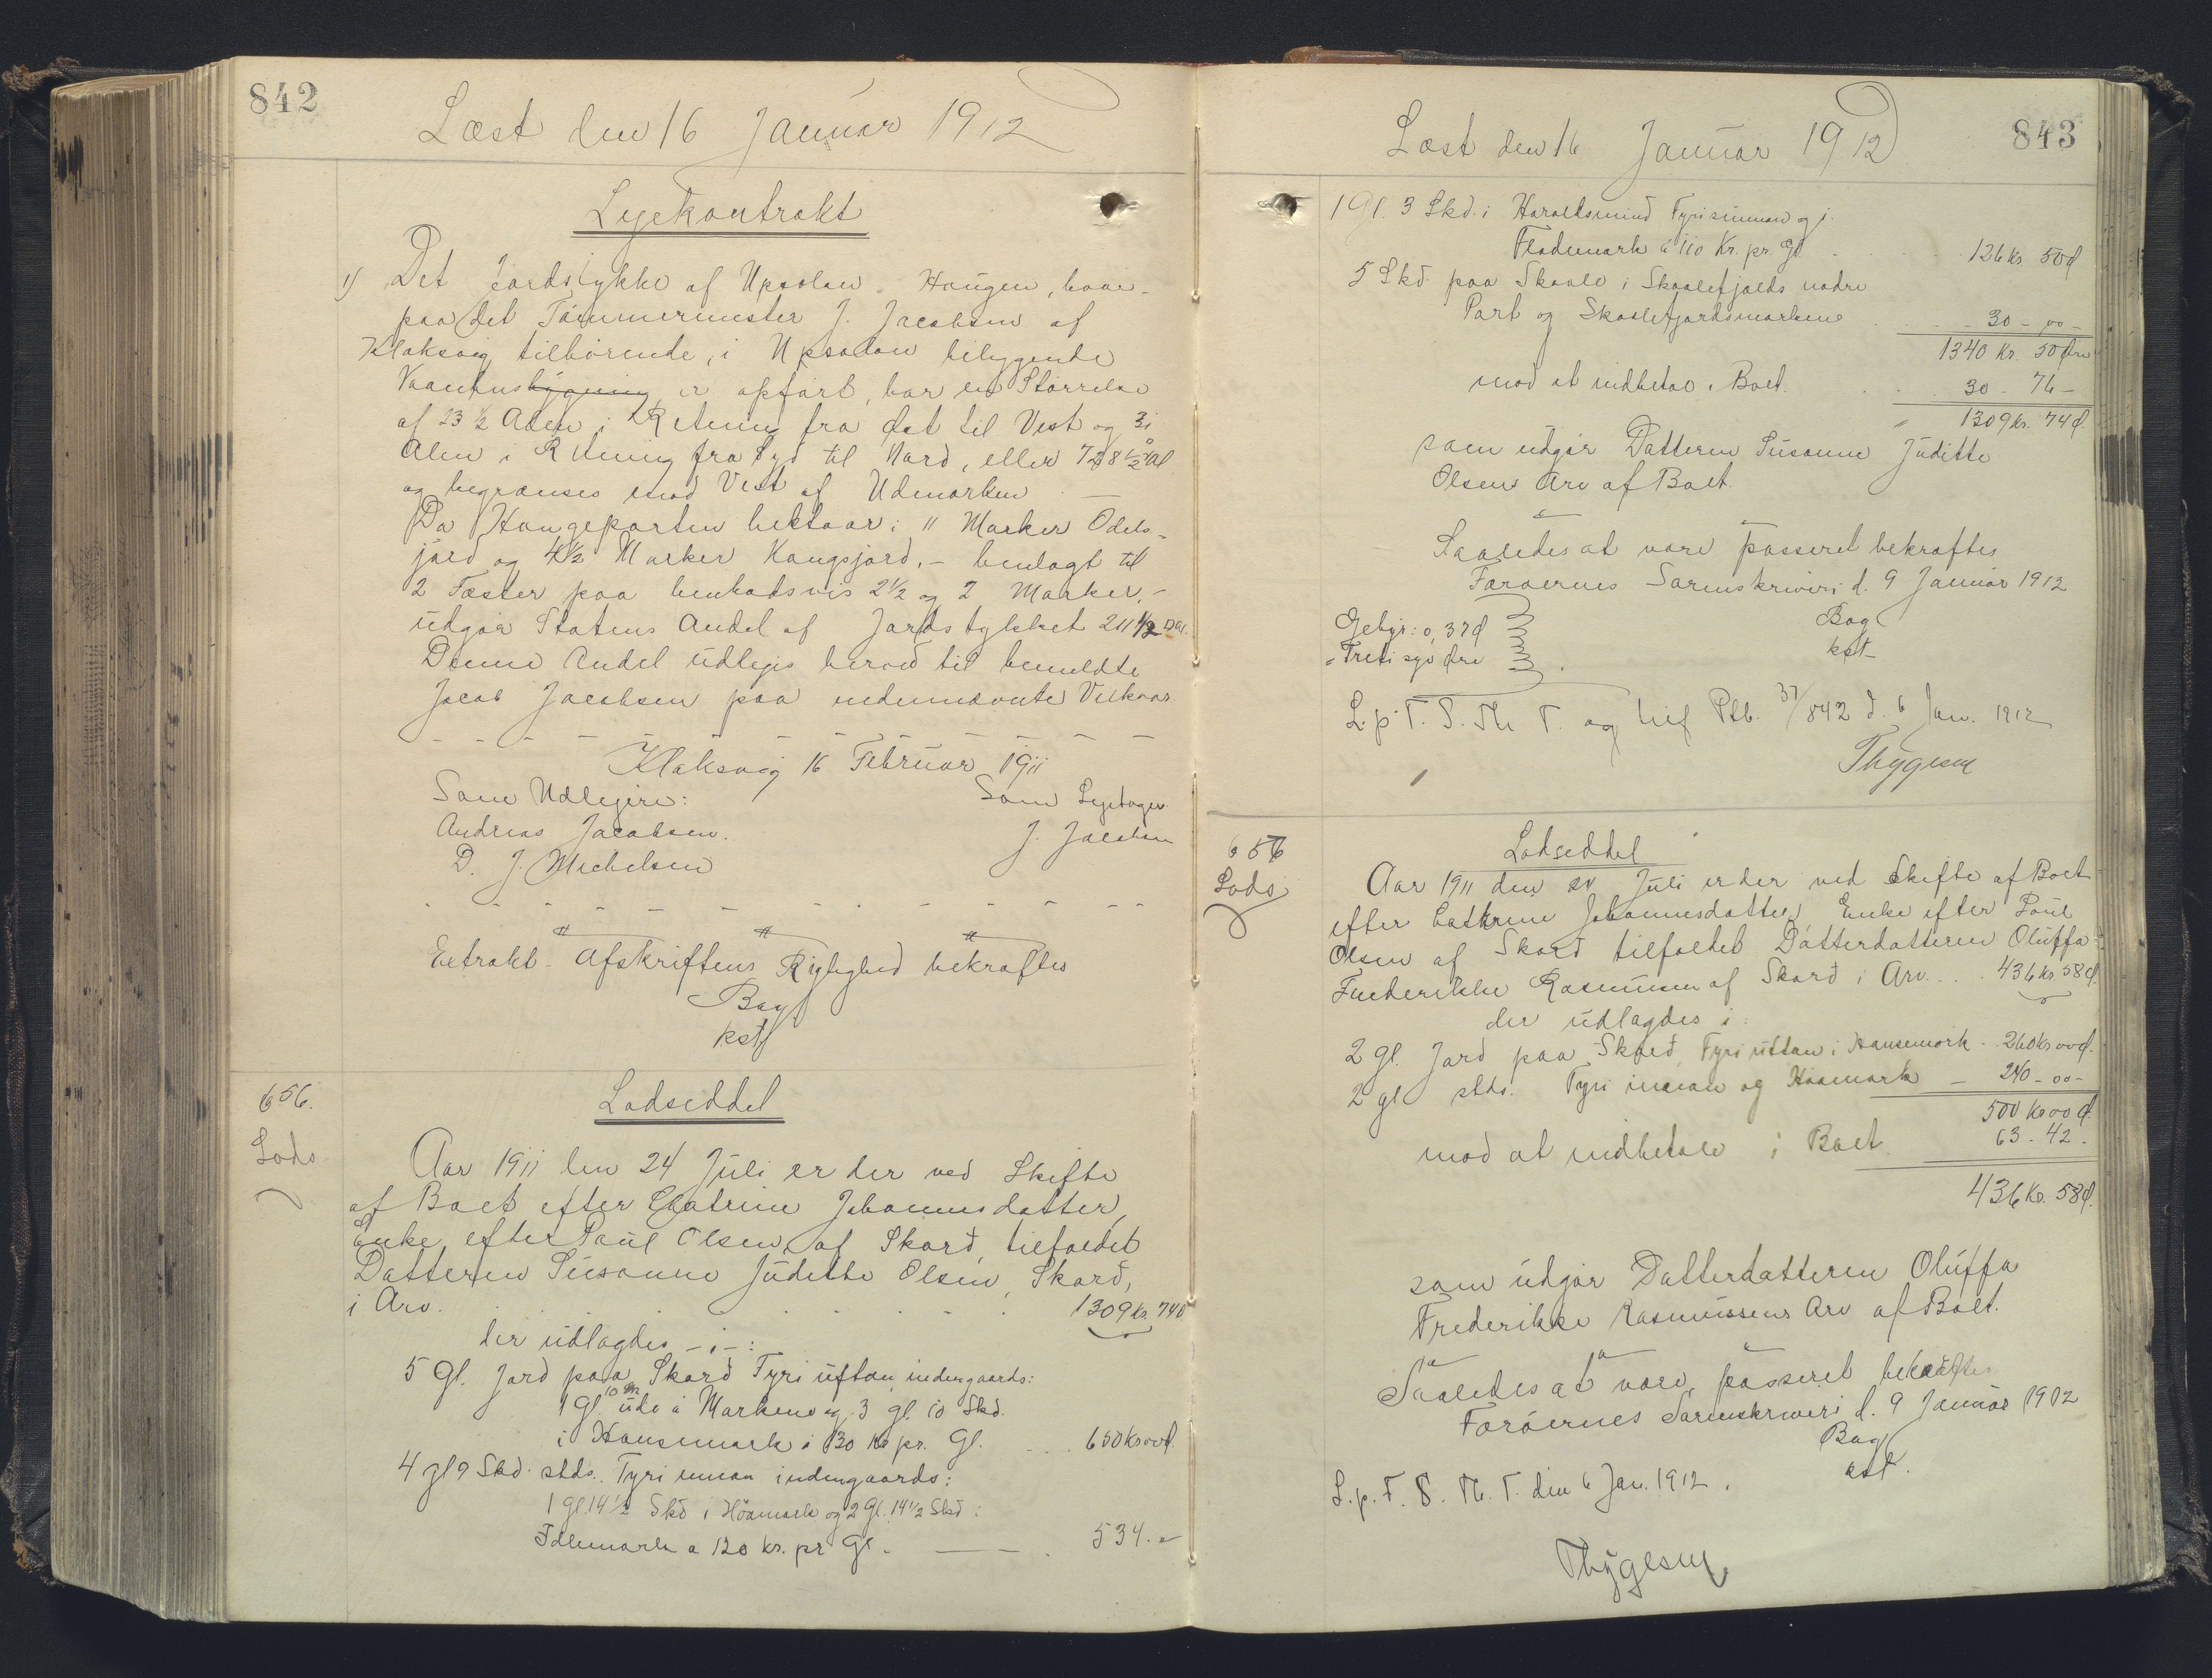 842
Læst den 16 Januar 1912
Lejekontrakt
1) Det Jordstykke af Upsolen - Haugen, hvor-
paa det Tømmermester J. Jacobsen af
Klaksvig tilhørende, i Upsalen beliggende
Vaanhusbygning er opført, har en Størrelse
af 23 1/2 Alen i Retning fra Øst til Vest og 31
Alen i Retning fra Syd til Nord, eller 728 1/2 □Al
og begrænses mod Vest af Udmarken
Da Haugeparten bestaar i 11 Marker Odels-
jord og 4 1/2 Marker Kongsjord, - henlagt til
2 Fæster paa henholdsvis 2 1/2 og 2 Marker, -
udgør Statens Andel af Jordstykket 211 1/2 □Al.
Denne Andel udlejes herved til bemeldte
Jacob Jacobsen paa nedennævnte Vilkaar.
Klaksvig 16 Februar 1911
Som Udlejere: Som Lejetager
Andreas Jacobsen. J. Jacobsen
D. J. Michelsen
Extrakt-Afskriftens Rigtighed bekræftes
Bag
kst
656.
Lods
Lodseddel
Aar 1911 den 24 Juli er der ved Skifte
af Boet efter Chatrine Johannesdatter,
Enke efter Poul Olsen af Skard, tilfaldet
Datteren Susanne Juditte Olsen, Skard,
i Arv. 1309 Kr. 74 Ø
der udlagdes - i - :
5 Gl. Jord paa Skard Fyri uttan indengaards:
1 Gl. 10 Sk ude i Markene og 3 gl. 10 Skd.
i Hansemark a 130 Kr pr. Gl. 650 Kr 00 Ø.
4 gl 9 Skd. stds. Fyri innan indengaards:
1 Gl. 14 1/2 Skd i Höamark og 2 Gl. 14 1/2 Skd i
a 120 kr. pr Gl. 534. -
843
Læst den 16 Januar 1912
19 1. 3 Skd. i Fyri innan og i
a 110 Kr. pr. Gl. 126 Kr. 50 Ø
5 Skd. paa Skaale i Skaalefjalds nadre
Part og Skaalefjordsmarkene 30 - 00 -
1340 Kr. 50 Øre
mod at indbetale i Boet. 30 - 76 -
1309 Kr. 74 Ø.
som udgør Datteren Susanne Juditte
Olsens Arv af Boet.
Saaledes at være passeret bekræftes
Færøernes Sorenskriveri d. 9 Januar 1912
Bag
kst
Gebyr: 0,37 Ø
Treti syv Øre
L. p. F. S. Th. T. og Ptb. 37/842 d. 6 Jan. 1912
Thygesen
656
Lods
Lodseddel
Aar 1911 den 24 Juli er der ved Skifte af Boet
efter Cathrine Johannesdatter Enke efter Poul
Olsen af Skard tilfaldet Datterdatteren Oluffa
Frederikke Rasmussen af Skard i Arv... 436 Kr. 58 Ø.
der udlagdes i:
2 gl. Jord paa Skard Fyri uttan i Hansemork 260 Kr 00 Ø.
2 gl stds. Fyri innan og Höamark - 240 - 00 -
500 Kr 00 Ø
mod at indbetale i Boet 63 - 42.
436 Kr. 58 Ø.
som udgør Datterdatteren Oluffa
Frederikke Rasmussens Arv af Boet.
Saaledes at være passeret bekræftes
Færöernes Sorenskriveri d. 9 Januar 1902
Bag
kst.
L. p. F. S. Th. T. den 6 Jan. 1912.
Thygesen